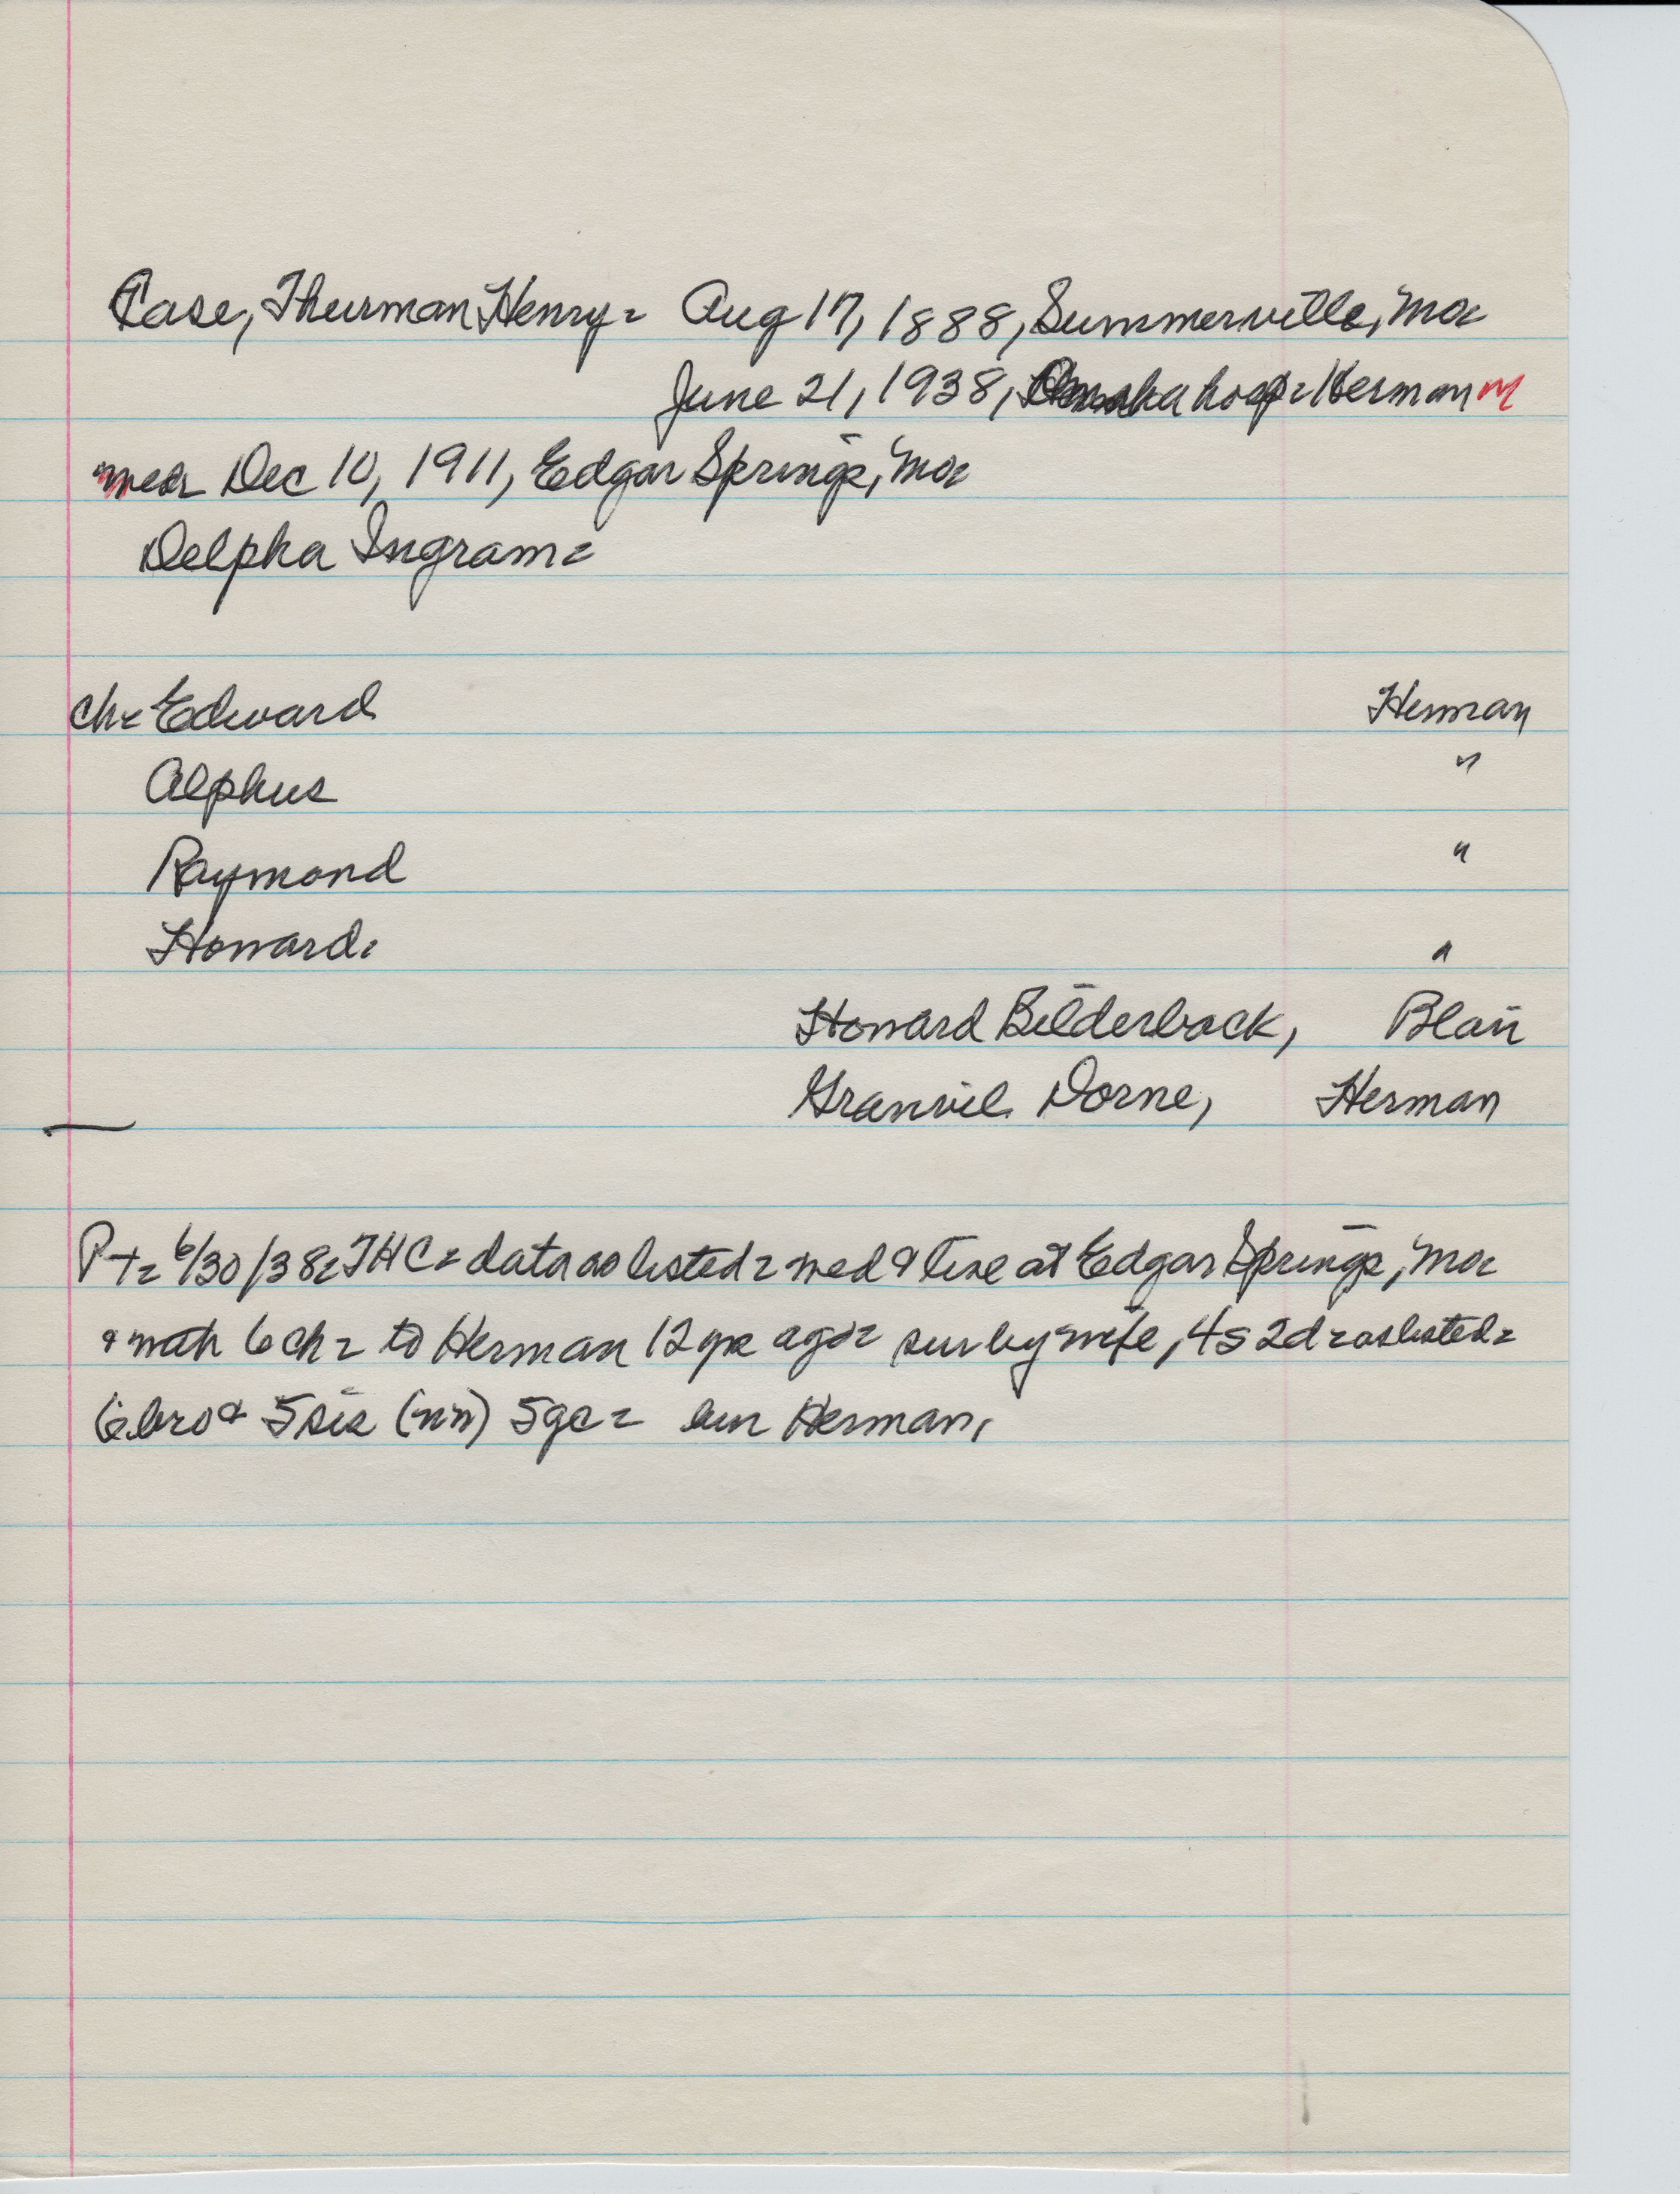 Case, Thurman Henry= Aug 17, 1888, Summerville, Mo=
June 21, 1938, Omaha hosp= Herman n
med= Dec 10, 1911, Edgar Springs, Mo=
Delpha Ingram=
ch= Edward Herman
Alphus "
Raymond "
Howard. "
Howard Bilderback, Blair
Granvil Dorne, Herman
PT= 6/30/38= THC= data as listed= med & live at Edgar Springs, Mo=
& with 6 ch= to Herman 12 yrs ago= sur by wife, 4s 2d= as listed=
6 bro & 5 sis (nn) 5 gc= bur Herman,